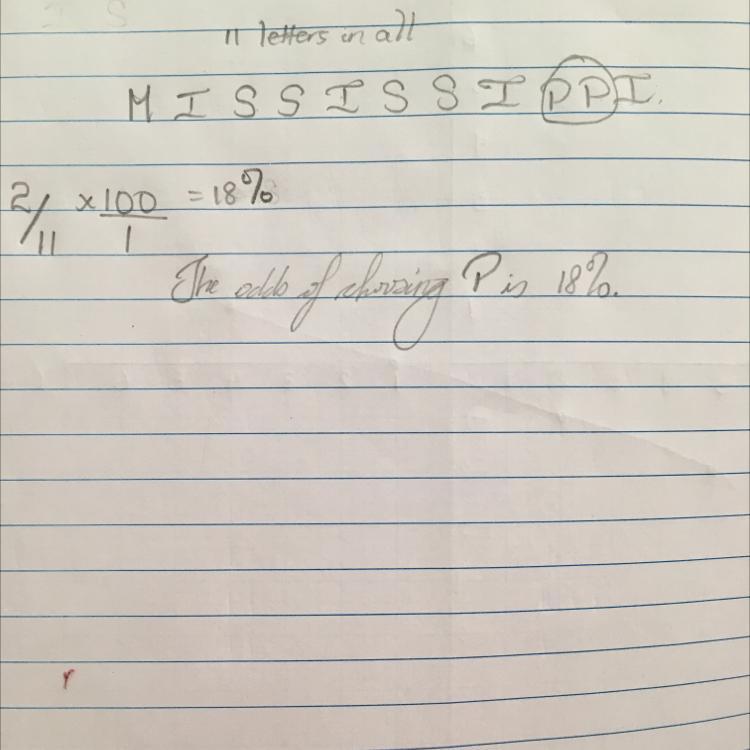 11 letters in all
M I S S I S S I P P I.
2/11 × 100/1 = 18%
The odds of choosing P is 18%.